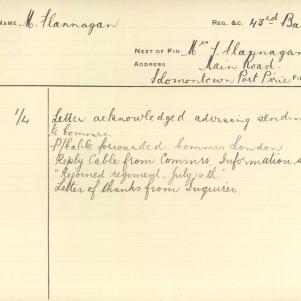 NAME M. Flannagan REG. &C. 43rd Ba
NEXT OF KIN Mrs J. Flannagan
ADDRESS Main Road
Solomontown Port Pirie
1/4 Letter acknowledged advising sending
to Commrs.
P/Cable forwarded Commrs London
Reply Cable from Commrs. Information s
"Rejoined regiment July 14th"
Letter of thanks from Inquirer.